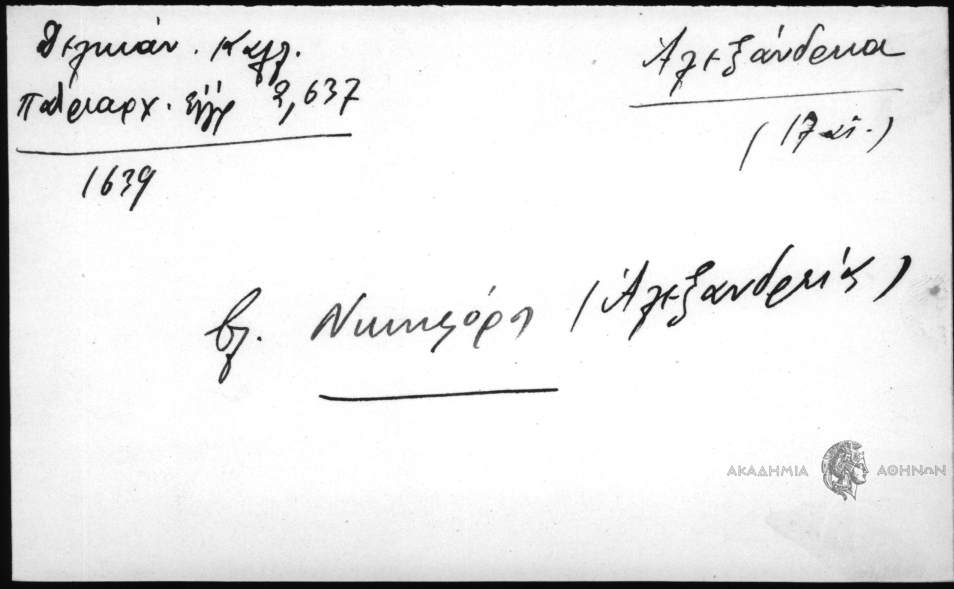 Δελικάν. Καλλ.
Πατριαρχ. ἔγγρ 2,637
1639
Ἀλεξάνδρεια
(17 αἰ.)
βλ. Νικηφόρο (Ἀλεξανδρείας)
ΑΚΑΔΗΜΙΑ ΑΘΗΝΩΝ